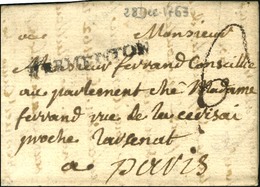 28 Dec 1763
Monsieur
VERMENTON
Monsieur ferrand Conseille
au parlement ché Madame
ferrand rue de la cerisai
proche larsenat
a paris